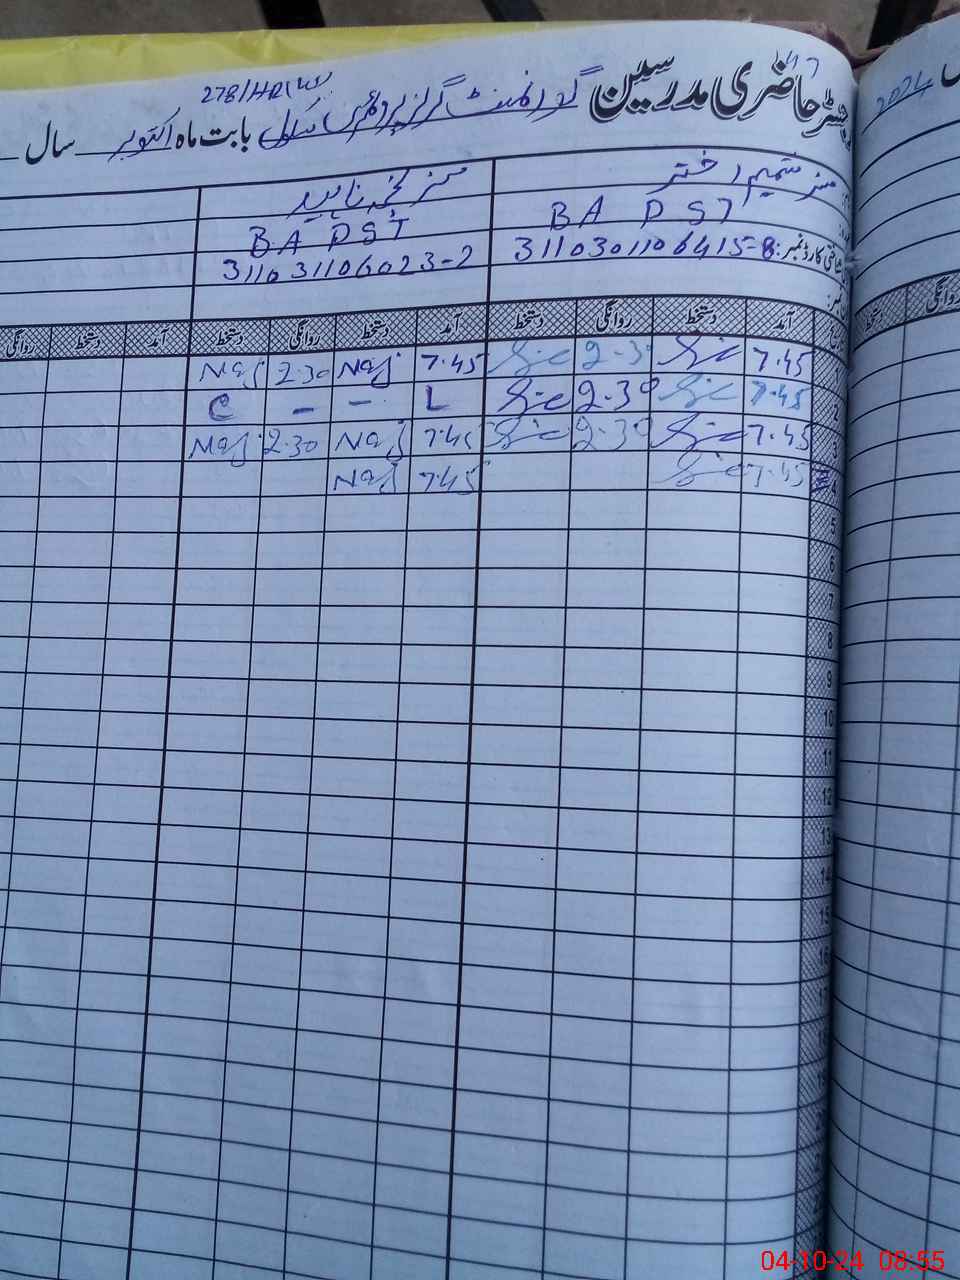 رجسٹر حاضری مدرسین گورنمنٹ گرلز پرائمری سکول 278/HR بابت ماہ اکتوبر سال
2024
مسز شمیم اختر مسز نجمہ ناہید
BA PST BA PST
شناختی کارڈ نمبر: 3110301106415-8 311031106023-2
آمد دستخط روانگی دستخط آمد دستخط روانگی دستخط آمد دستخط روانگی
دستخط روانگی
1 7.45 2.30 7.45 Naj 2.30 Naj
2 7.45 2.30 L - - C
3 7.45 2.30 7.45 Naj 2.30 Naj
4 7.45 7.45 Naj
5
6
7
8
9
10
11
12
13
14
15
16
17
04-10-24 08:55